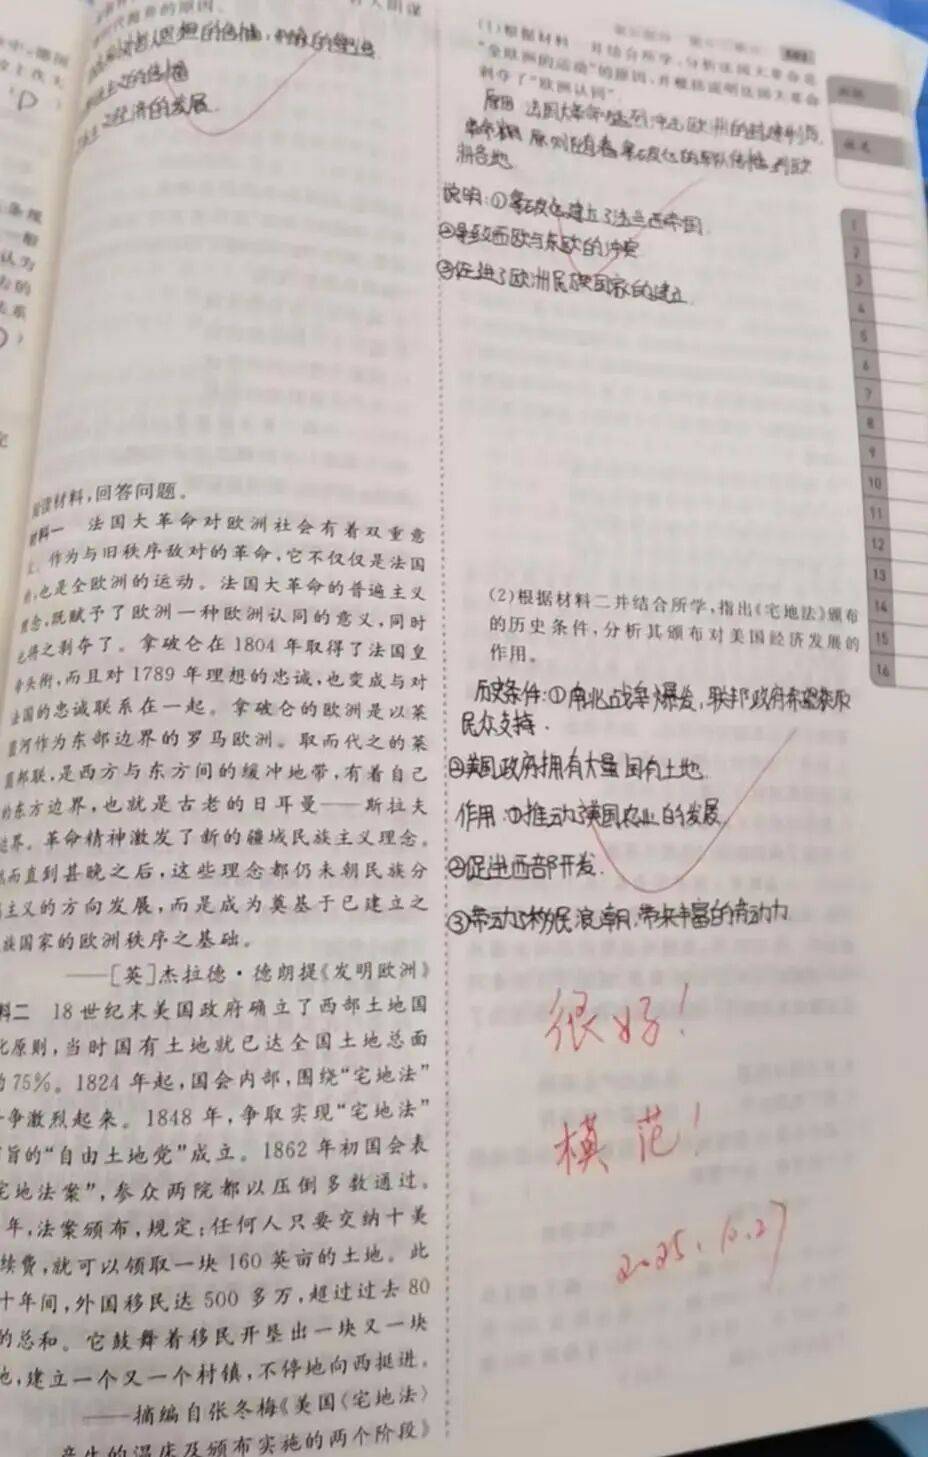 代推荐的原因.
经济的发展.
阅读材料,回答问题。
材料一 法国大革命对欧洲社会有着双重意
作为与旧秩序敌对的革命,它不仅仅是法国
也是全欧洲的运动。法国大革命的普遍主义
念,既赋予了欧洲一种欧洲认同的意义,同时
将之剥夺了。拿破仑在1804年取得了法国皇
帝头衔,而且对1789年理想的忠诚,也变成与对
法国的忠诚联系在一起。拿破仑的欧洲是以莱
茵河作为东部边界的罗马欧洲。取而代之的莱
茵邦联,是西方与东方间的缓冲地带,有着自己
的东方边界,也就是古老的日耳曼——斯拉夫
边界。革命精神激发了新的疆域民族主义理念。
然而直到甚晚之后,这些理念都仍未朝民族分
主义的方向发展,而是成为奠基于已建立之
族国家的欧洲秩序之基础。
——[英]杰拉德·德朗提《发明欧洲》
料二 18世纪末美国政府确立了西部土地国
化原则,当时国有土地就已达全国土地总面
的75%。1824年起,国会内部,围绕“宅地法”
争激烈起来。1848年,争取实现“宅地法”
旨的“自由土地党”成立。1862年初国会表
宅地法案”,参众两院都以压倒多数通过。
年,法案颁布,规定:任何人只要交纳十美
续费,就可以领取一块160英亩的土地。此
十年间,外国移民达500多万,超过过去80
的总和。它鼓舞着移民开垦出一块又一块
地,建立一个又一个村镇,不停地向西挺进。
——摘编自张冬梅《美国〈宅地法〉
产生的温床及颁布实施的两个阶段》
(1)根据材料一并结合所学,分析法国大革命是
“全欧洲的运动”的原因,并概括说明法国大革命
剥夺了“欧洲认同”.
原因 法国大革命 冲击欧洲的封建制度,
原则随着拿破仑的军队传播到欧
洲各地
说明:①拿破仑建立了法兰西帝国.
②导致西欧与东欧的冲突
③促进了欧洲民族国家的建立.
(2)根据材料二并结合所学,指出《宅地法》颁布
的历史条件,分析其颁布对美国经济发展的
作用。
历史条件:①南北战争爆发,联邦政府希望获取
民众支持.
②美国政府拥有大量国有土地.
作用:①推动了美国农业的发展
②促进西部开发.
③带动了移民浪潮,带来丰富的劳动力
很好!
模范!
2025.10.27
1
2
3
4
5
6
7
8
9
10
11
12
13
14
15
16